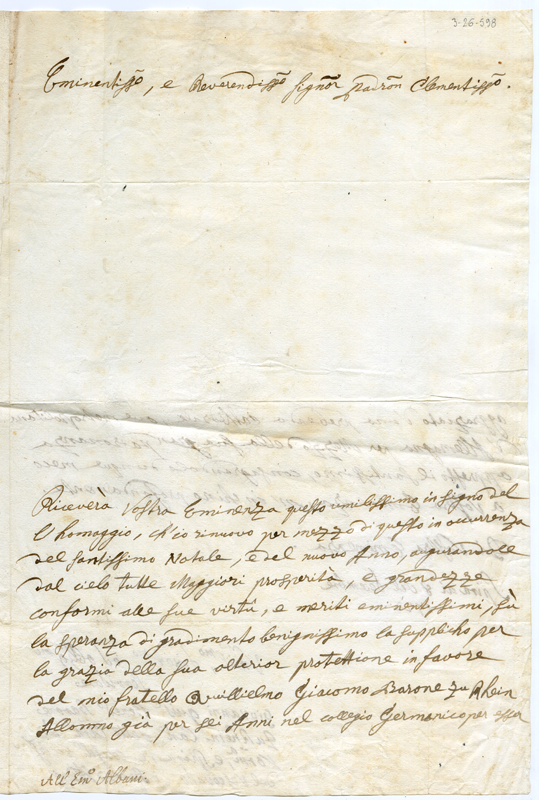 3-26-598
Eminentisso, e Reverendisso Signor Padron Clementisso.
Riceverà Vostra Eminenza questo umilissimo in signo del
l'homaggio, ch'io rinuovo per mezzo di questo in occurrenza
del santissimo Natale, e del nuovo Anno, augurandole
dal cielo tutte Maggiori prosperità, e grandezze
conformi alle sue virtù, e meriti eminentissimi, sù
la speranza di gradimento benignissimo la supplicho per
la grazia della sua alterior protettione in favore
del mio fratello Guillielmo Giacomo Barone zu Rhein
Allonno già per sei Anni nel collegio Germanico per esser
All' Emo Albani